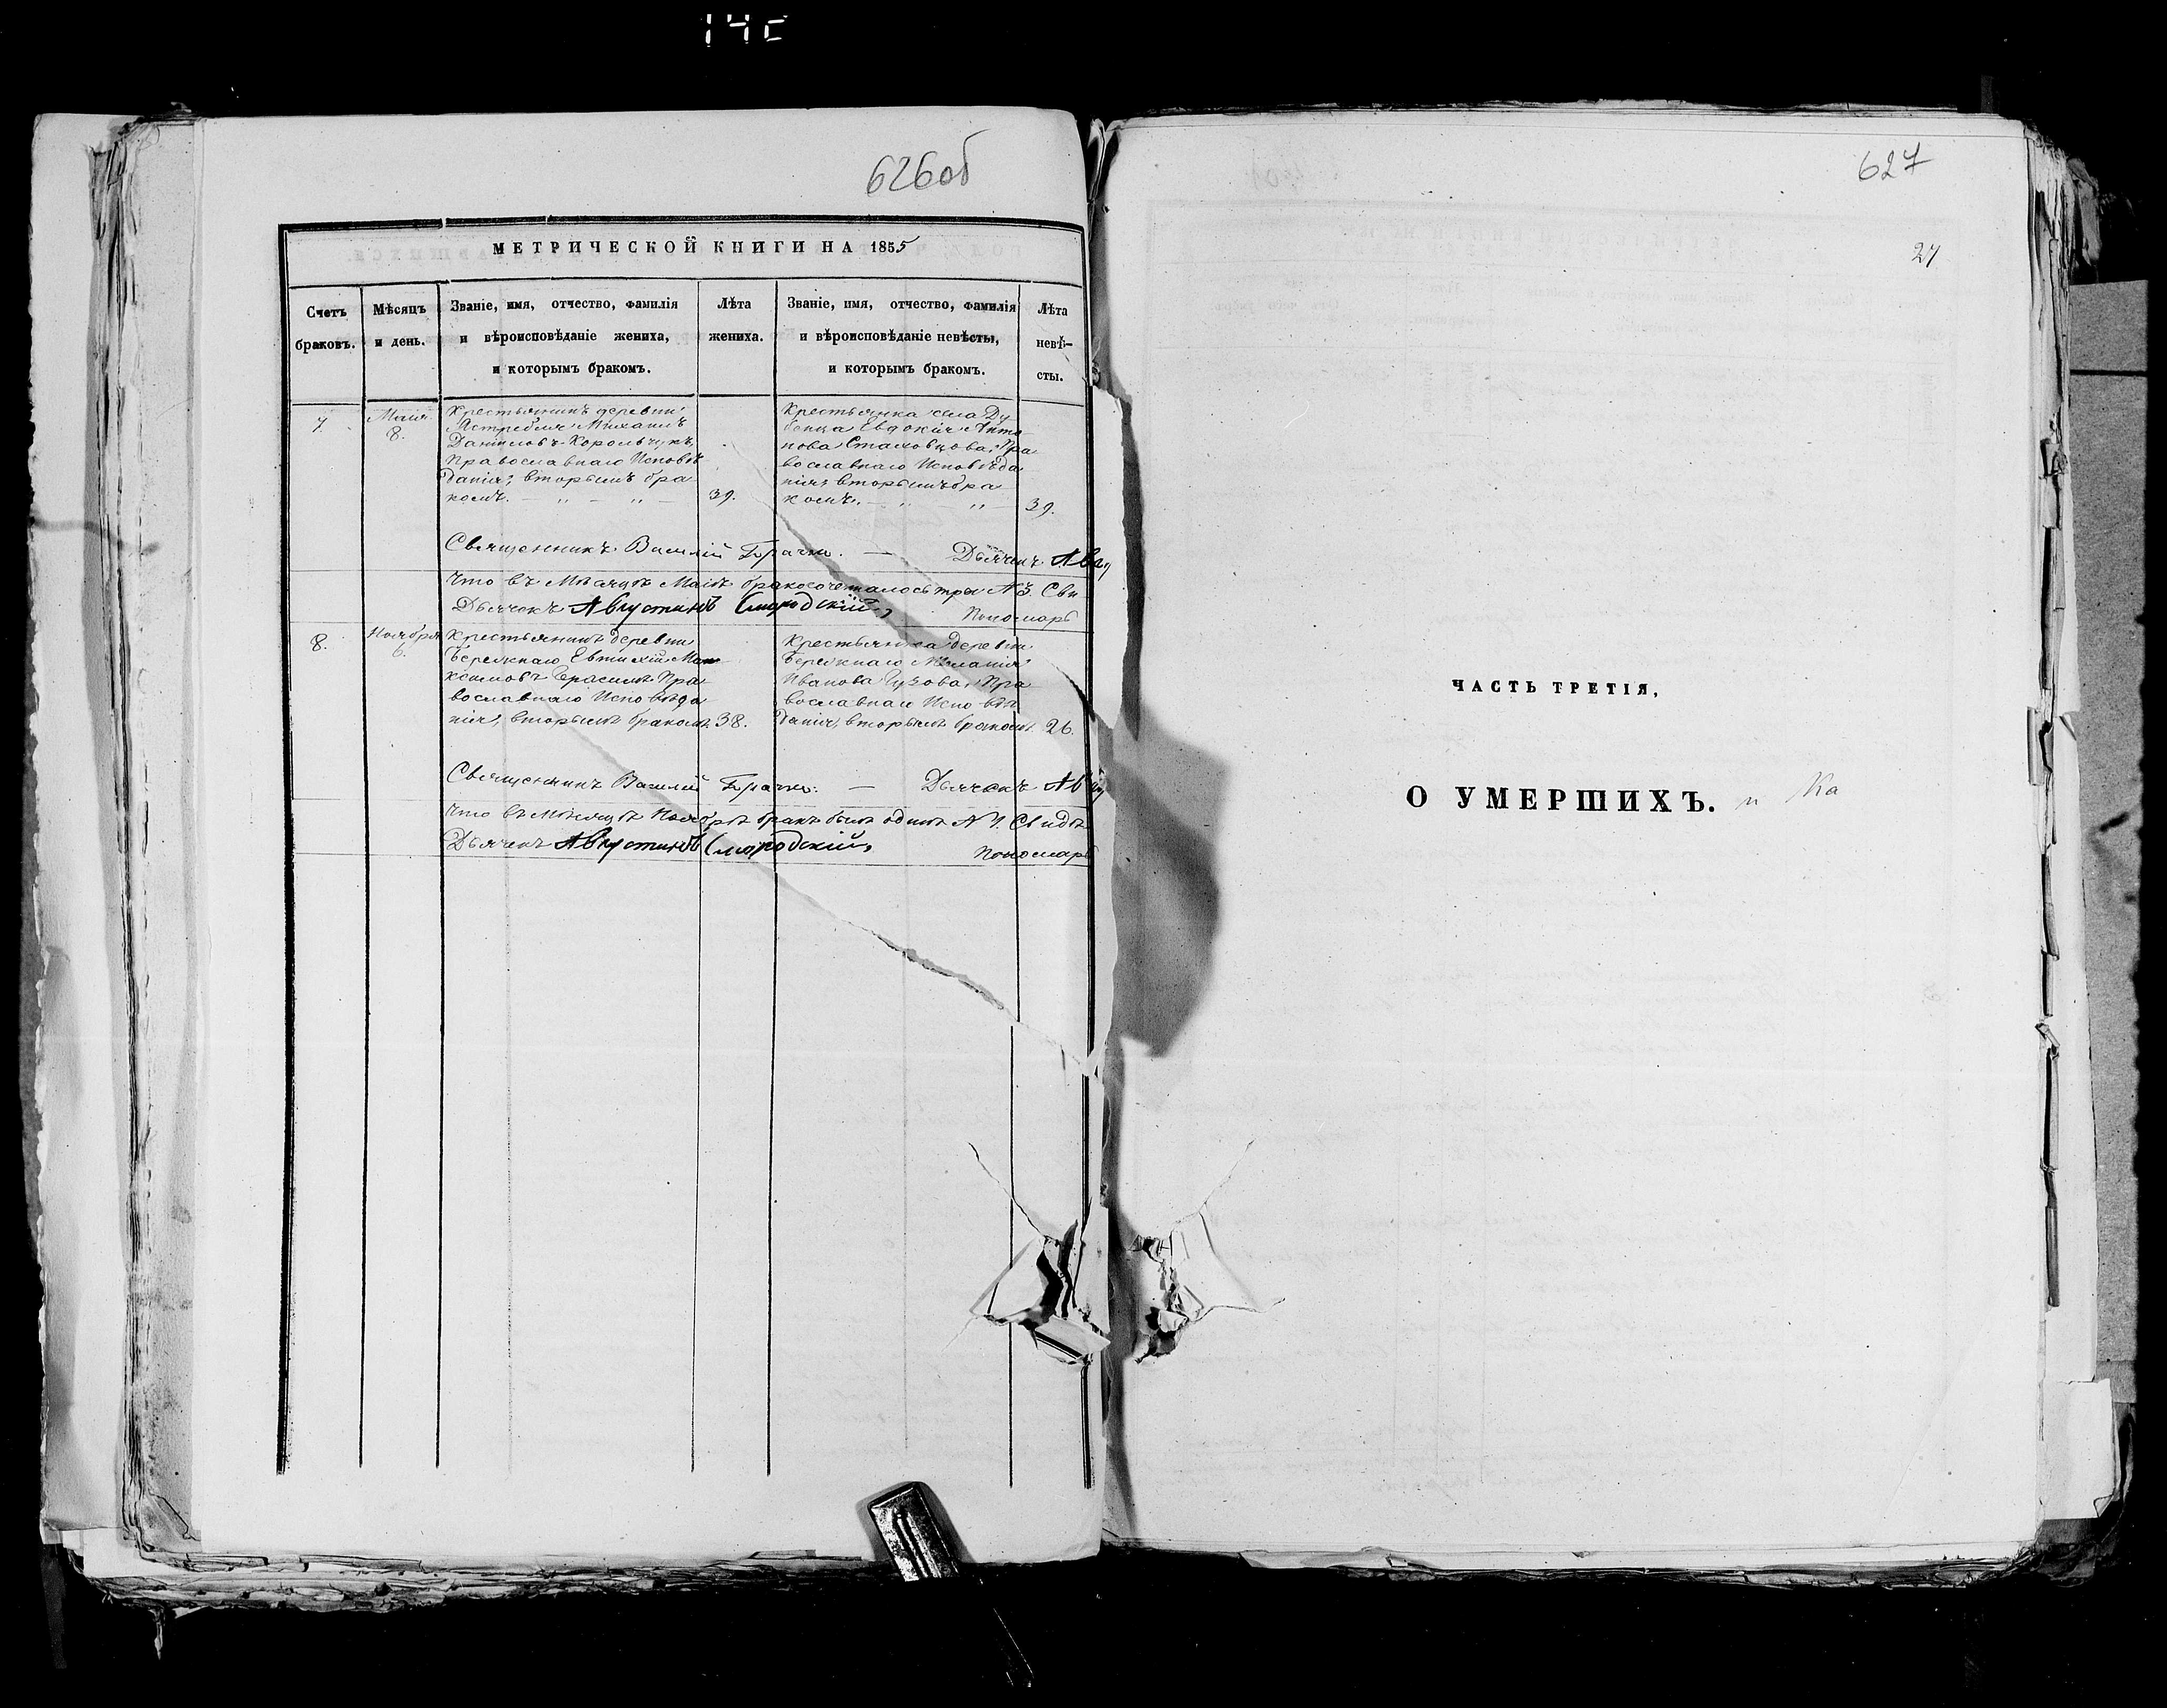 626об
МЕТРИЧЕСКОЙ КНИГИ НА 1855
Счетъ браковъ.
Мѣсяцъ и день.
Званіе, имя, отчество, фамилія
и вѣроисповѣданіе жениха,
и которымъ бракомъ.
Лѣта жениха.
Званіе, имя, отчество, фамилія
и вѣроисповѣданіе невѣсты,
и которымъ бракомъ.
Лѣта
невѣ-
сты.
7
Маія
8.
Крестьянинъ деревни
Ястребля Михаилъ
Даниловъ Корольчукъ,
Православнаго Исповѣ
данія, вторымъ бра
комъ.
39.
Крестьянка села Ду
бенца Евдокія Анто
нова Стаховцова, Пра
вославнаго Исповѣда
нія, вторымъ бра
комъ.
39.
Священникъ Василій
Дьячекъ Авгу
Что въ Мѣсяцѣ Маіѣ бракосочеталось три №3. Сви
Дьячекъ Августинъ Смородскій,
Пономарь
8.
Ноября
6.
Крестьянинъ деревни
Бережнаго Евтихій Мак
симовъ Герасимъ Пра
вославнаго Исповѣда
нія, вторымъ бракомъ.
38.
Крестьянка деревни
Бережнаго Меланія
Иванова Гузова, Пра
вославнаго Исповѣ
данія, вторымъ бракомъ.
26.
Священникъ Василій
Дьячекъ Авгу
Что въ Мѣсяцѣ Ноябрѣ бракъ былъ одинъ №1. Свидѣ
Дьячекъ Августинъ Смородскій,
Пономарь
627
27
ЧАСТЬ ТРЕТІЯ,
О УМЕРШИХЪ.